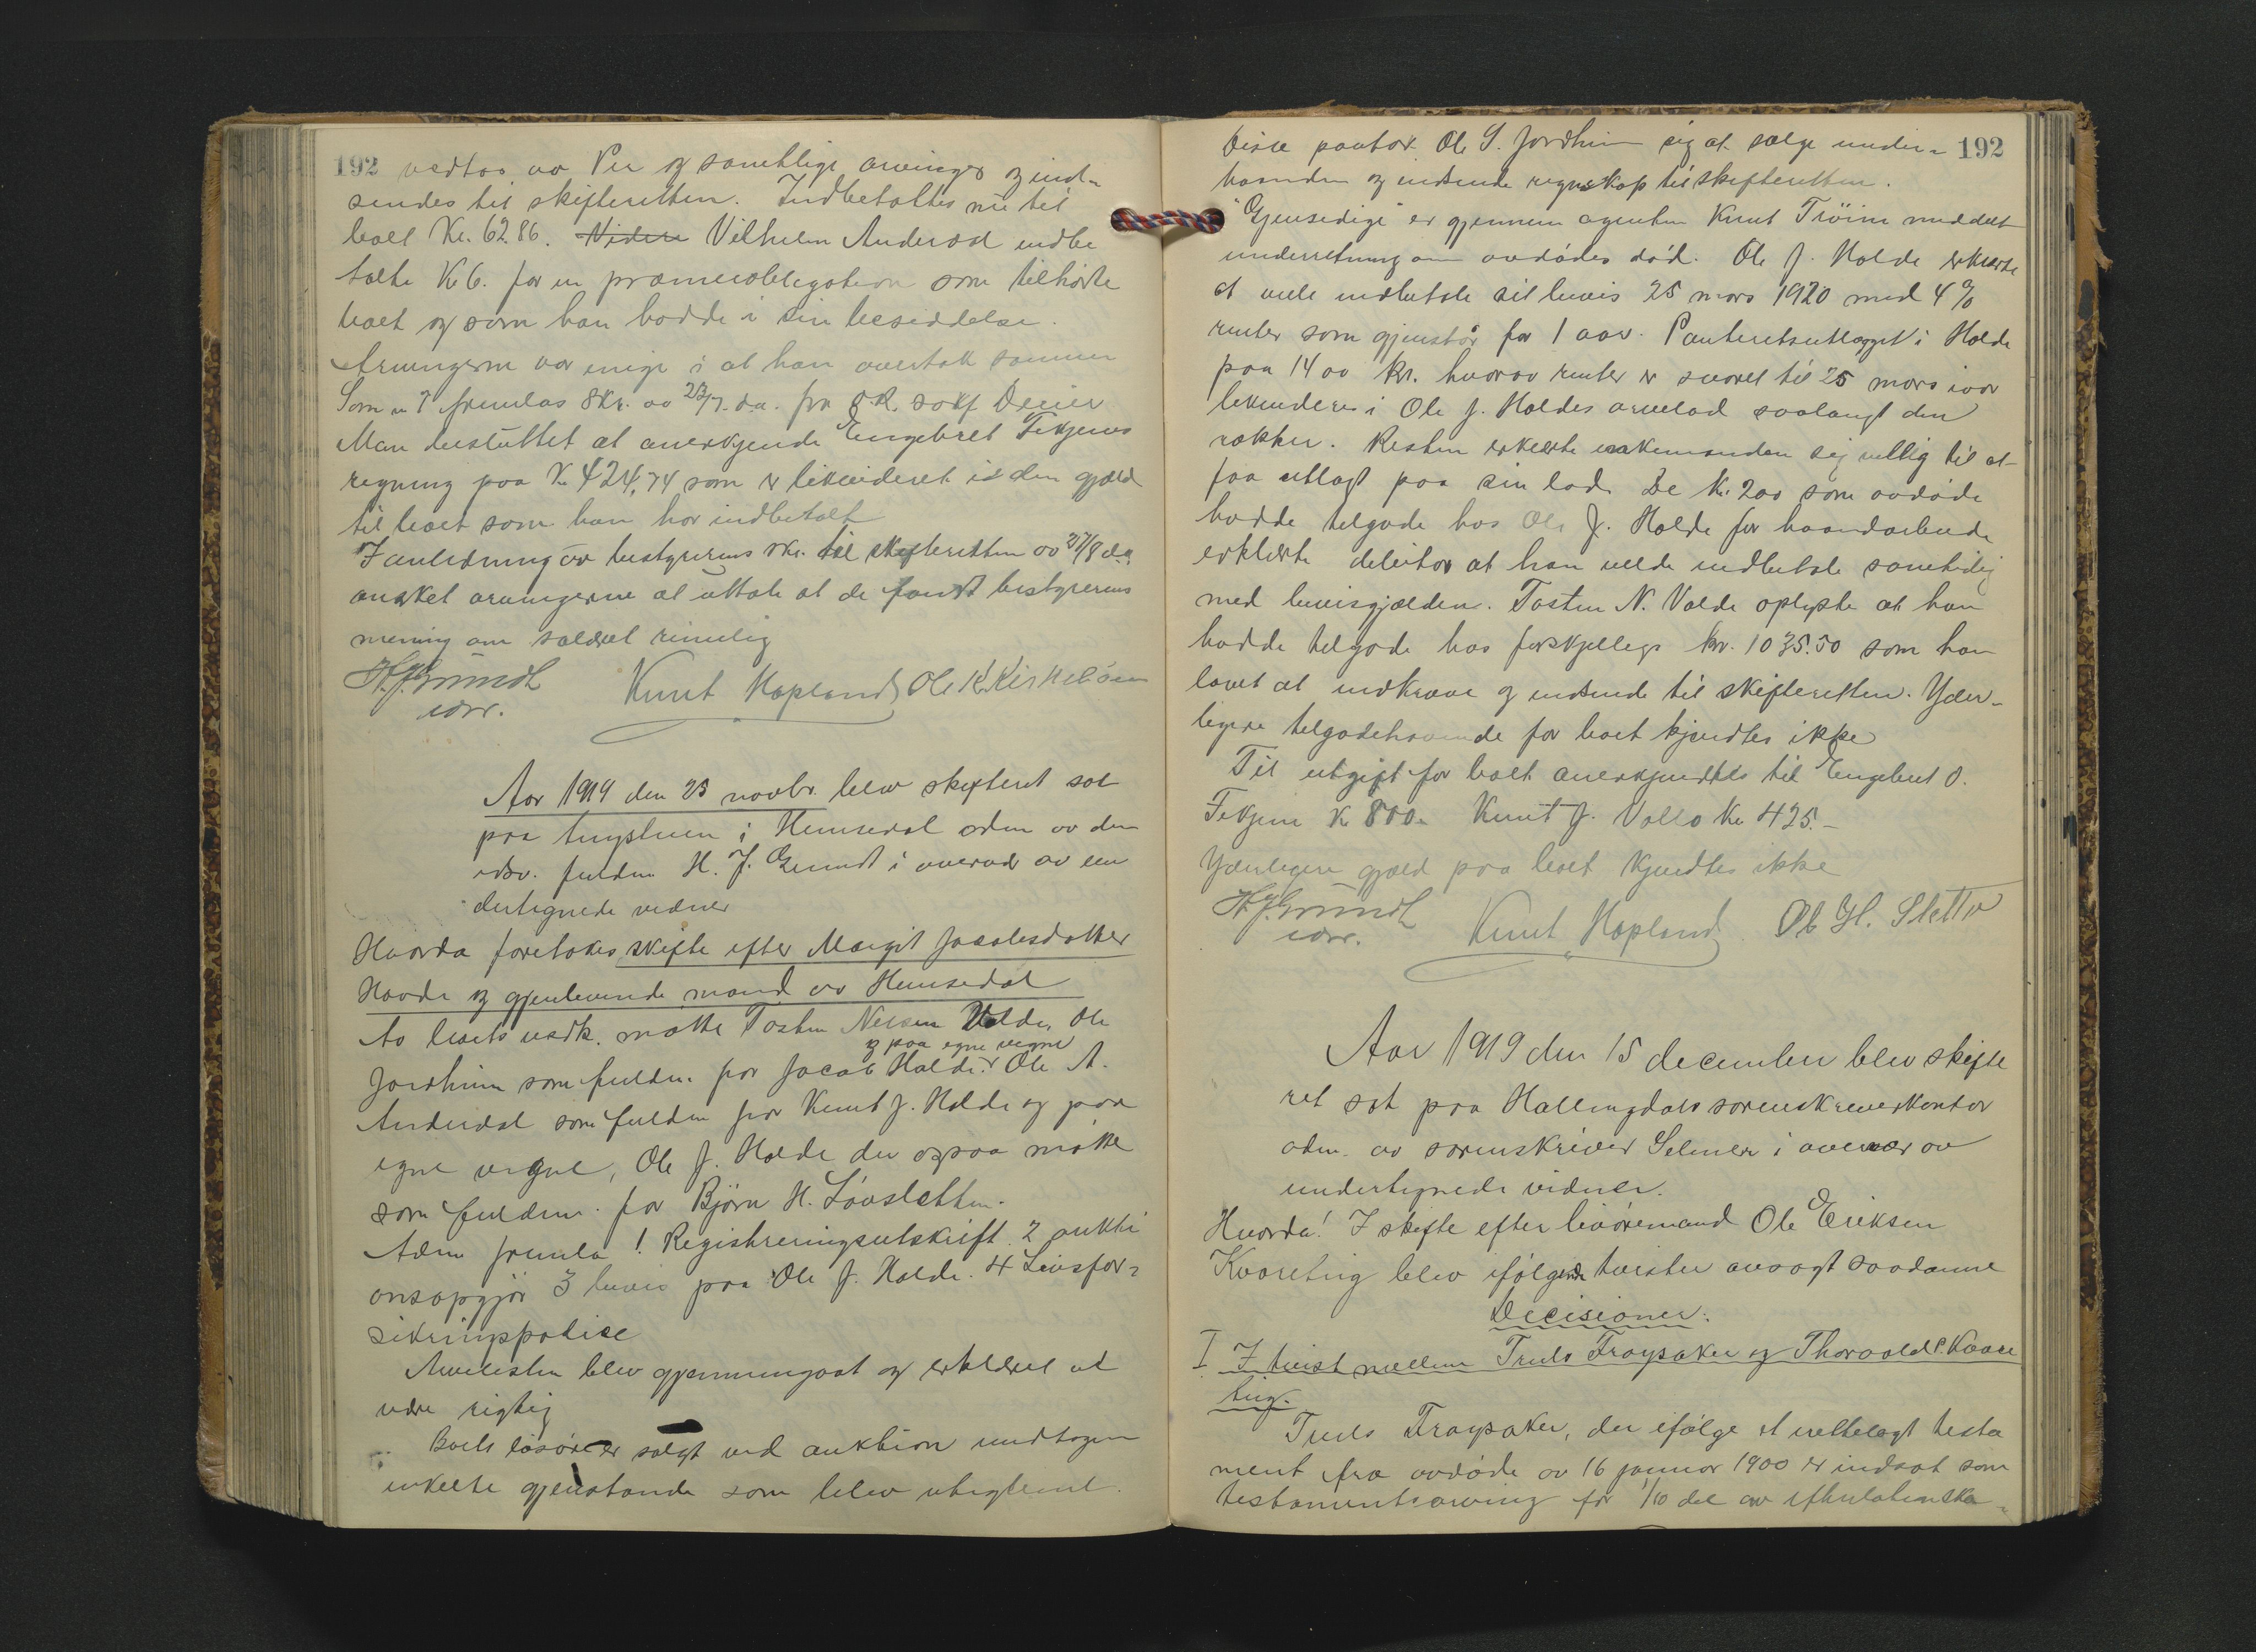 192 vedtas av Per og samtlige arvinger og ind-
sendes til skifteretten. Indbetaltes nu til
boet Kr. 62.86. Videre Vilhelm Anderdal indbe
talte K 6. for en præmieobligation som tilhörte
boet og som han hadde i sin besiddelse.
Arvingerne var enige i at han overtok samme
Som n 7 fremlas skr. av 23/7 d.a. fra o.r. sakf.
Man besluttet at anerkjende Engebret Fekjenes
regning paa Kr 424,74 som er likvideret i den gjæld
til boet som han har indbetalt
I anledning av bestyrerens skr. til skifteretten av 27/8 d.a.
önsket arvingerne at uttale at de fandt bestyrerens
mening om salæret rimelig
H. J. Grundt Knut Hapland Ole K. Kirkeböen
edsv.
Aar 1919 den 23 novbr. blev skifteret sat
paa tingstuen i Hemsedal adm av den
edsv. fuldm. H. J. Grundt i overvær av un
dertegnede vidner
Hvorda foretokes skifte efter Margit Jacobsdatter
Holde og gjenlevende mand av Hemsedal
Av boets vedk. mötte Tosten Nelsen Valde, Ole
og paa egne vegne
Jordheim som fuldm. for Jacob Holde. Ole A.
Anderdal som fuldm for Knut J. Holde og paa
egne vegne, Ole J. Holde der ogsaa mötte
som fuldm. for Björn H. Lövsletten.
Adm fremla 1. Registreringsutskrift 2 aukti
onsopgjör 3 bevis paa Ole J. Holde. 4 Livsfor-
sikringspolice
Arvelisten blev gjennemgaat og erklæret at
være rigtig
Boets lösöre er solgt ved auktion undtagen
enkelte gjenstande som blev uteglemt.
Disse paatok Ole S. Jordheim sig at sælge under- 192
haanden og indsende regnskap til skifteretten.
"Gjensidige" er gjennem agenten Knut Tröim meddelt
underretning om avdödes död. Ole J. Holde erklærte
at ville indbetale sit bevis 25 mars 1920 med 4%
renter som gjenstår for 1 aar. Panteretsutlægget i Holde
paa 1400 kr. hvorav renter er svaret til 25 mars iaar
likvideres i Ole J. Holdes arvelod saalangt den
rækker. Resten erklærte enkemanden sig villig til at
faa utlagt paa sin lod. De Kr. 200 som avdöde
hadde tilgode hos Ole J. Holde for haandarbeide
erklærte debitor at han vilde indbetale samtidig
med bevisgjælden. Tosten N. Valde oplyste at han
hadde tilgode hos forskjellige kr. 1035.50 som han
lovet at indkræve og indsende til skifteretten. Yder-
ligere tilgodehavende for boet kjendtes ikke
Til utgift for boet anerkjendtes til Engebret O.
Fekjene Kr 800.- Knut J. Vallo Kr. 425.-
Yderligere gjæld paa boet kjendtes ikke
H. J. Grundt Knut Hapland Ol. Gl. Slette
edsv.
Aar 1919 den 15 december blev skifte
ret sat paa Hallingdals sorenskriverkontor
adm. av sorenskriver Selmer i overvær av
undertegnede vidner.
Hvorda! I skifte efter livöremand Ole Eriksen
Kvareting blev ifölgende tvister avsagt saadanne
Decisioner:
I I tvist mellem Truls Traysaker og Thorvald P. Kvare
ting.
Truls Traysaker, der ifölge et rettelagt testa
ment fra avdöde av 16 januar 1900 er indsat som
testamentsarving for 1/10 del av efterlatenska-